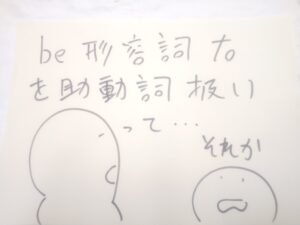 be 形容詞 to
を助動詞 扱い
って…
それか